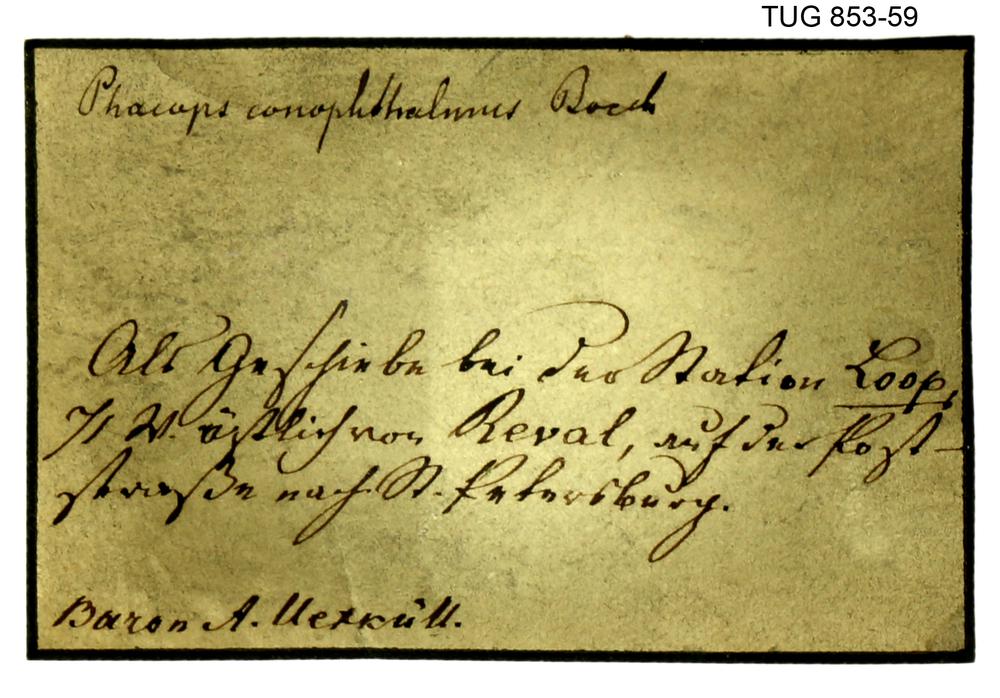 TUG 853-59
Phacops conophthalmus Boeck
Als Geschiebe bei der Station Loop,
71 W. östlich von Reval, auf der Post-
straße nach St. Petersburg.
Baron A. Uexküll.